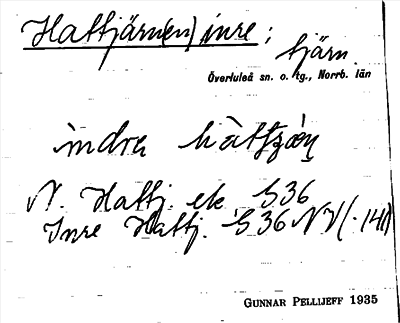 Hattjärn(en) inre;
tjärn.
Överluleå sn. o. tg., Norrb. län
indra
N. Hattj. ek S36
Inre Hattj. S36 NV(.141)
GUNNAR PELLIJEFF 1935